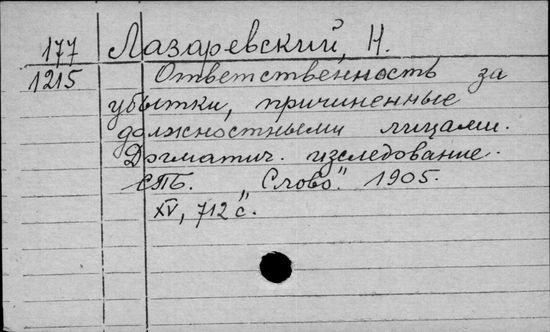 177 Лазаревский, Н.
1215 Ответственность за
убытки, причиненные
должностными лицами.
Догматич. изследование.
СПБ. "Слово". 1905.
XV, 712 с.